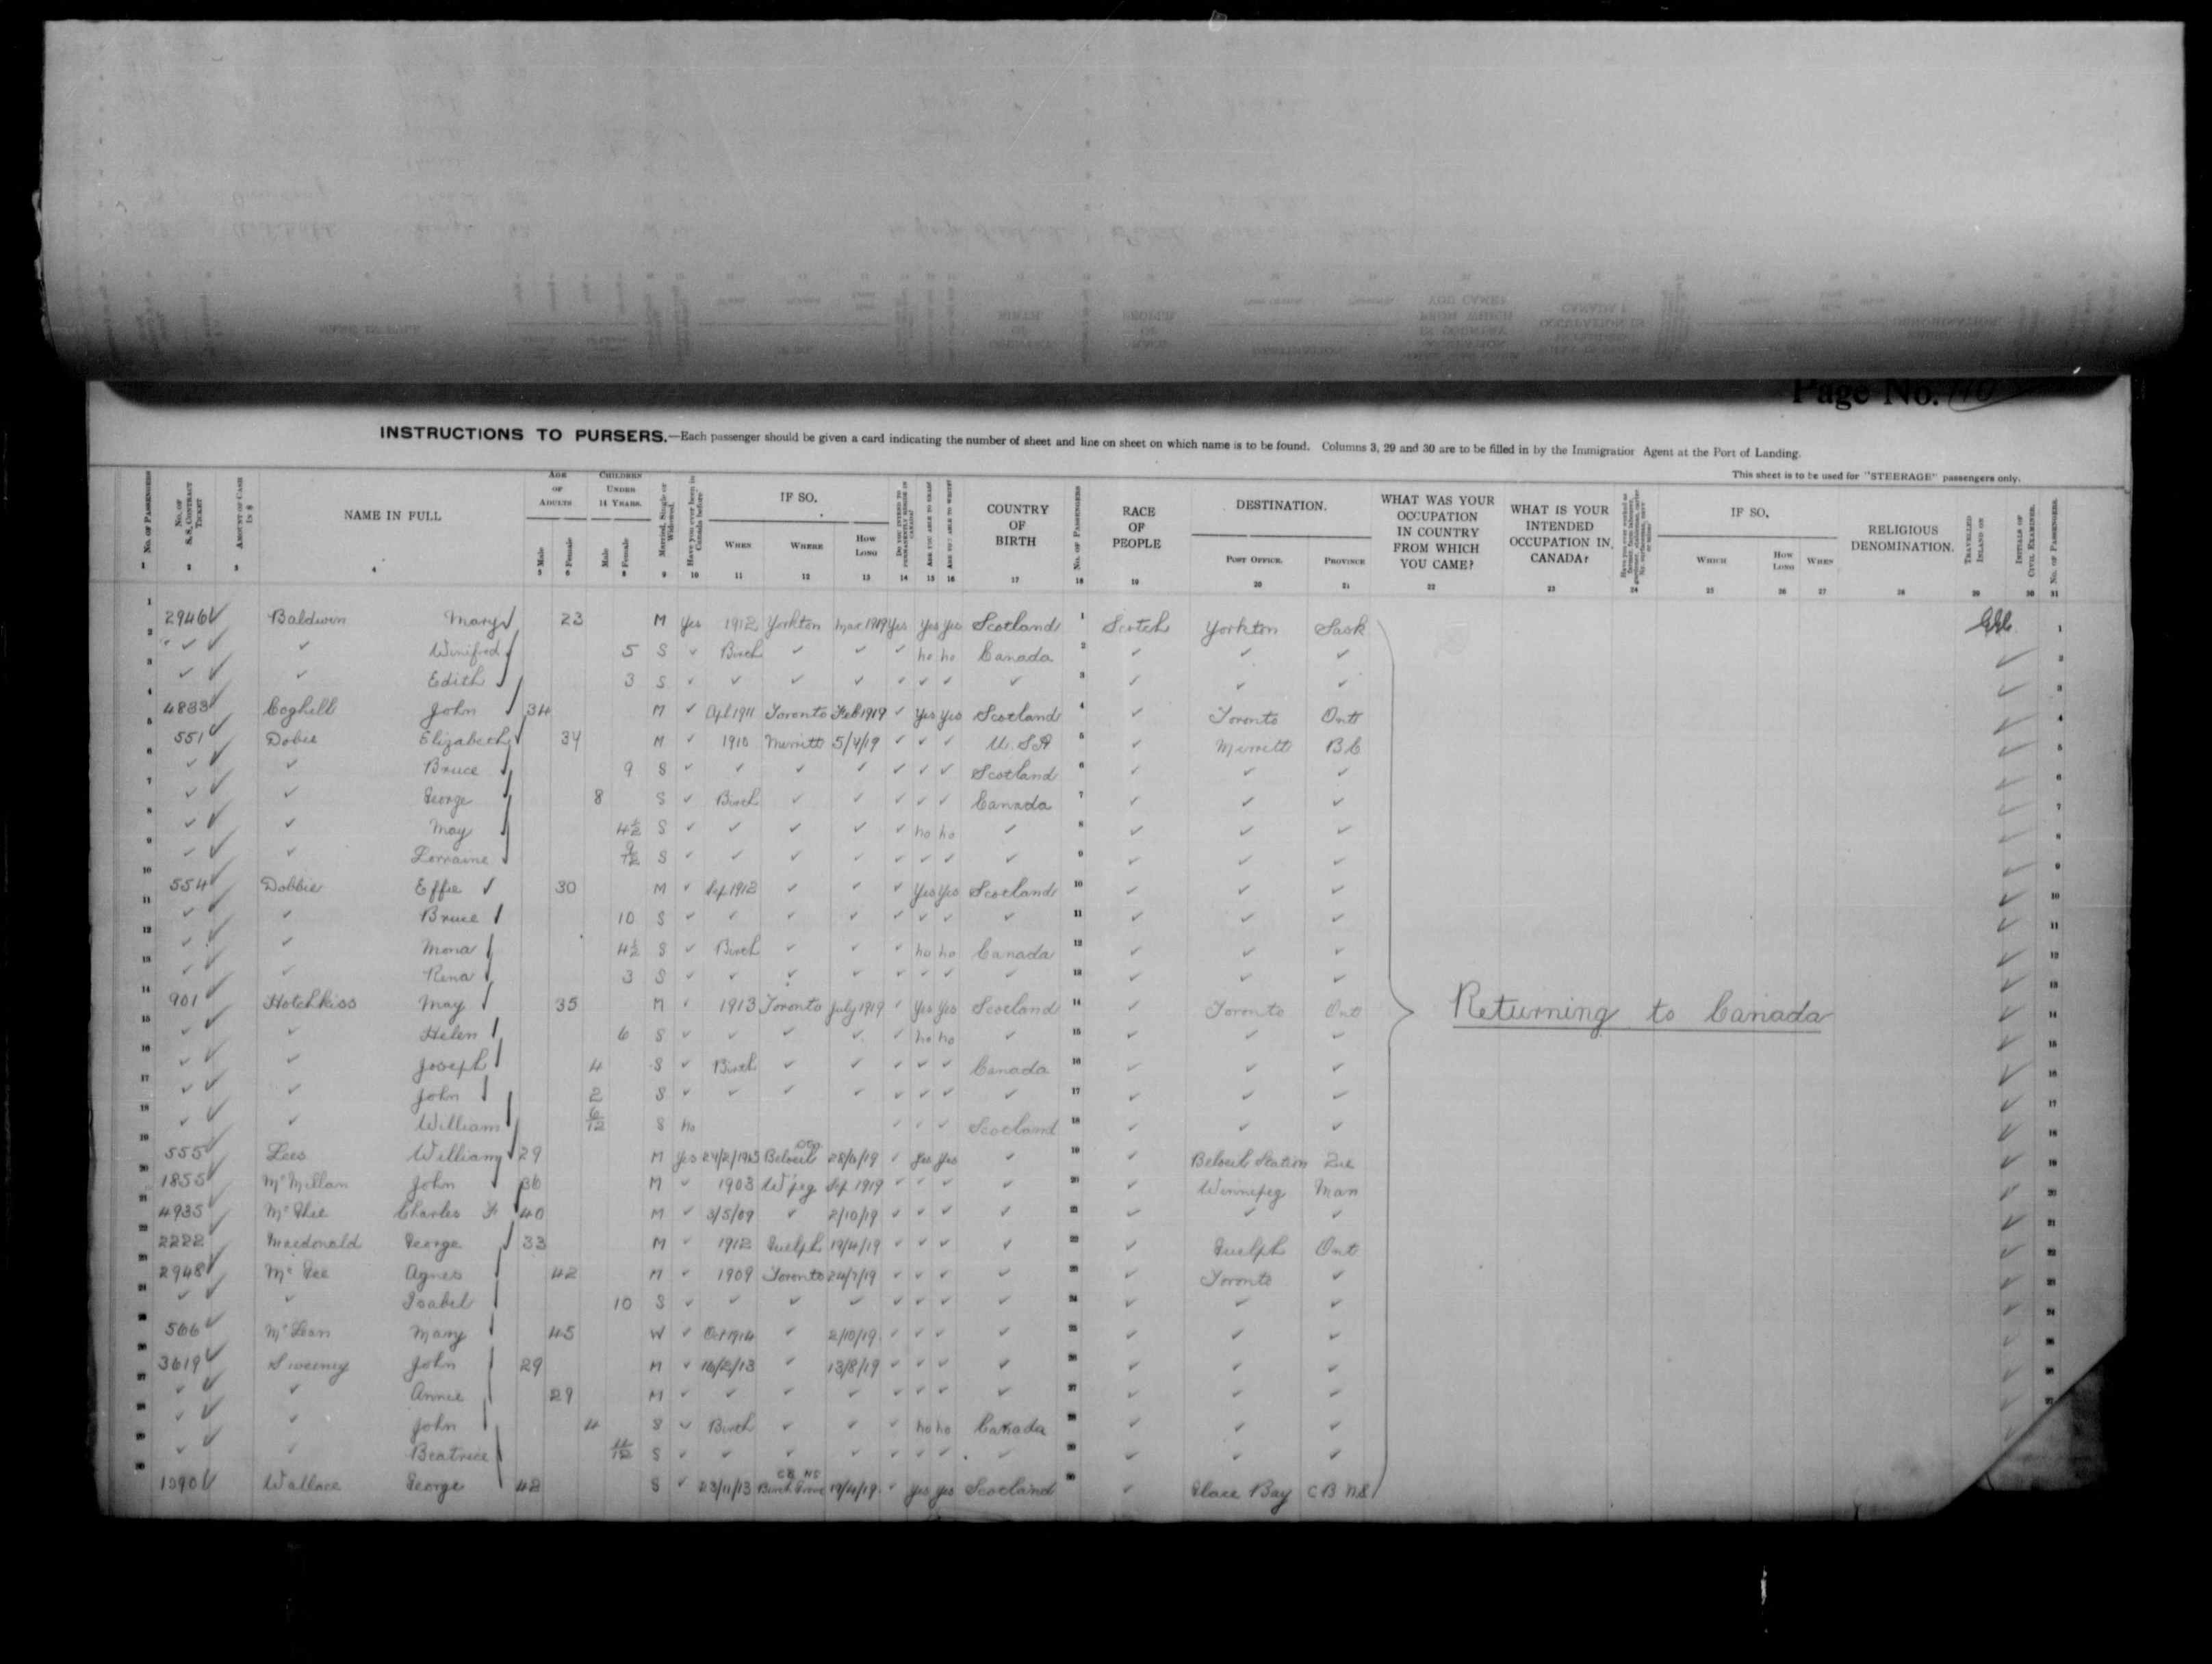 Page No. 110
INSTRUCTIONS TO PURSERS.—Each passenger should be given a card indicating the number of sheet and line on sheet on which name is to be found. Columns 3, 29 and 30 are to be filled in by the Immigration Agent at the Port of Landing.
This sheet is to be used for "STEERAGE" passengers only.
No. OF PASSENGERS No. OF S.S. CONTRACT TICKET AMOUNT OF CASH IN $ NAME IN FULL AGE OF ADULTS Male Female CHILDREN UNDER 14 YEARS. Male Female Married, Single or Widowed. Have you ever been in Canada before? IF SO. WHEN WHERE HOW LONG DO YOU INTEND TO PERMANENTLY RESIDE IN CANADA? ARE YOU ABLE TO READ? ARE YOU ABLE TO WRITE? COUNTRY OF BIRTH No. OF PASSENGERS RACE OF PEOPLE DESTINATION. POST OFFICE. PROVINCE WHAT WAS YOUR OCCUPATION IN COUNTRY FROM WHICH YOU CAME? WHAT IS YOUR INTENDED OCCUPATION IN CANADA? IF SO, WHICH HOW LONG WHEN RELIGIOUS DENOMINATION. TRAVELLED INLAND ON INITIALS OF CIVIL EXAMINER. No. OF PASSENGERS.
1 2 3 4 5 6 8 9 10 11 12 13 14 15 16 17 18 19 20 21 22 23 24 25 26 27 28 29 30 31
1 2946 ✓ Baldwin Mary ✓ 23 M Yes 1912 Yorkton Mar 1919 Yes Yes Yes Scotland 1 Scotch Yorkton Sask 1
2 ✓ ✓ ✓ Winifred 5 S ✓ Birth ✓ ✓ ✓ no no Canada 2 ✓ ✓ ✓ ✓ 2
3 ✓ ✓ ✓ Edith 3 S ✓ ✓ ✓ ✓ ✓ ✓ ✓ ✓ 3 ✓ ✓ ✓ ✓ 3
4 4833 ✓ Coghill John 34 M ✓ Apl 1911 Toronto Feb 1919 ✓ Yes Yes Scotland 4 ✓ Toronto Ont ✓ 4
5 551 ✓ Dobie Elizabeth 34 M ✓ 1910 Merritt 5/4/19 ✓ ✓ ✓ U.S.A 5 ✓ Merritt B.C ✓ 5
6 ✓ ✓ ✓ Bruce 9 S ✓ ✓ ✓ ✓ ✓ ✓ ✓ Scotland 6 ✓ ✓ ✓ ✓ 6
7 ✓ ✓ ✓ George 8 S ✓ Birth ✓ ✓ ✓ ✓ ✓ Canada 7 ✓ ✓ ✓ ✓ 7
8 ✓ ✓ ✓ May 4½ S ✓ ✓ ✓ ✓ ✓ no no ✓ 8 ✓ ✓ ✓ ✓ 8
9 ✓ ✓ ✓ Lorraine 9/12 S ✓ ✓ ✓ ✓ ✓ ✓ ✓ ✓ 9 ✓ ✓ ✓ ✓ 9
10 554 ✓ Dobbie Effie ✓ 30 M ✓ Sep 1912 ✓ ✓ ✓ Yes Yes Scotland 10 ✓ ✓ ✓ ✓ 10
11 ✓ ✓ ✓ Bruce 10 S ✓ ✓ ✓ ✓ ✓ ✓ ✓ ✓ 11 ✓ ✓ ✓ ✓ 11
12 ✓ ✓ ✓ Mona 4½ S ✓ Birth ✓ ✓ ✓ no no Canada 12 ✓ ✓ ✓ ✓ 12
13 ✓ ✓ ✓ Rena 3 S ✓ ✓ ✓ ✓ ✓ ✓ ✓ ✓ 13 ✓ ✓ ✓ ✓ 13
14 901 ✓ Hotchkiss May 35 M ✓ 1913 Toronto July 1919 ✓ Yes Yes Scotland 14 ✓ Toronto Ont Returning to Canada ✓ 14
15 ✓ ✓ ✓ Helen 6 S ✓ ✓ ✓ ✓ ✓ no no ✓ 15 ✓ ✓ ✓ ✓ 15
16 ✓ ✓ ✓ Joseph 4 S ✓ Birth ✓ ✓ ✓ ✓ ✓ Canada 16 ✓ ✓ ✓ ✓ 16
17 ✓ ✓ ✓ John 2 S ✓ ✓ ✓ ✓ ✓ ✓ ✓ ✓ 17 ✓ ✓ ✓ ✓ 17
18 ✓ ✓ ✓ William 6/12 S No ✓ ✓ ✓ Scotland 18 ✓ ✓ ✓ ✓ 18
19 555 ✓ Lees William 29 M Yes 24/2/1913 Beloeil 28/6/19 ✓ Yes Yes ✓ 19 ✓ Beloeil Station Que ✓ 19
20 1855 ✓ McMillan John 36 M ✓ 1903 W'peg Sep 1919 ✓ ✓ ✓ ✓ 20 ✓ Winnipeg Man ✓ 20
21 4935 ✓ McPhie Charles F 40 M ✓ 3/5/09 ✓ 2/10/19 ✓ ✓ ✓ ✓ 21 ✓ ✓ ✓ ✓ 21
22 2222 ✓ Macdonald George 33 M ✓ 1912 Guelph 19/4/19 ✓ ✓ ✓ ✓ 22 ✓ Guelph Ont ✓ 22
23 2948 ✓ McGee Agnes 42 M ✓ 1909 Toronto 24/7/19 ✓ ✓ ✓ ✓ 23 ✓ Toronto ✓ ✓ 23
24 ✓ ✓ ✓ Isabel 10 S ✓ ✓ ✓ ✓ ✓ ✓ ✓ ✓ 24 ✓ ✓ ✓ ✓ 24
25 566 ✓ McLean Mary 45 W ✓ Oct 1914 ✓ 2/10/19 ✓ ✓ ✓ ✓ 25 ✓ ✓ ✓ ✓
26 3619 ✓ Sweeney John 29 M ✓ 16/2/13 ✓ 13/8/19 ✓ ✓ ✓ ✓ 26 ✓ ✓ ✓ ✓
27 ✓ ✓ ✓ Annie 29 M ✓ ✓ ✓ ✓ ✓ ✓ ✓ ✓ 27 ✓ ✓ ✓ ✓
28 ✓ ✓ ✓ John 4 S ✓ Birth ✓ ✓ ✓ no no Canada 28 ✓ ✓ ✓
29 ✓ ✓ ✓ Beatrice 11/12 S ✓ ✓ ✓ ✓ ✓ ✓ ✓ ✓ 29 ✓ ✓ ✓
30 1390 ✓ Wallace George 42 S ✓ 23/11/13 Birch Grove CB NS 19/4/19 ✓ Yes Yes Scotland 30 ✓ Glace Bay CB NS